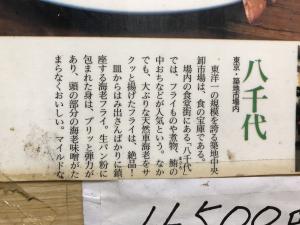 八千代
東京・築地市場内
東洋一の規模を誇る築地中央
卸市場は、食の宝庫である。
場内の食堂街にある「八千代」
では、フライものや煮物、鮪の
中おちなどが人気という。なか
でも、大ぶりな天然車海老をサ
クッと揚げたフライは、絶品!
皿からはみ出さんばかりに鎮
座する海老フライ。生パン粉に
包まれた身は、プリッと弾力が
あり、頭の部分の海老味噌がた
まらなくおいしい。マイルドな